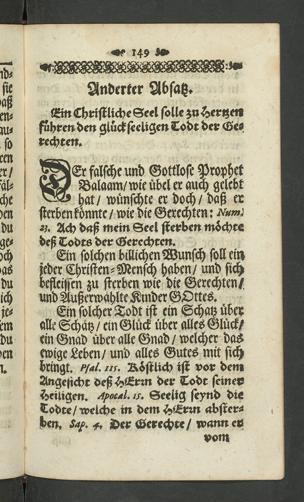 149
Anderter Absatz.
Ein Christliche Seel solle zu Hertzen
führen den glückseeligen Todt der Ge-
rechten.
DEr falsche und Gottlose Prophet
Balaam/ wie übel er auch gelebt
hat/ wünschte er doch/ daß er
sterben könnte/ wie die Gerechten: Num.
23. Ach daß mein Seel sterben möchte
deß Todts der Gerechten.
Ein solchen billichen Wunsch soll ein
jeder Christen-Mensch haben/ und sich
befleissen zu sterben wie die Gerechten/
und Außerwählte Kinder GOttes.
Ein solcher Todt ist ein Schatz über
alle Schätz/ ein Glück über alles Glück/
ein Gnad über alle Gnad/ welcher das
ewige Leben/ und alles Gutes mit sich
bringt. Psal. 115. Köstlich ist vor dem
Angesicht deß HErrn der Todt seiner
Heiligen. Apocal. 15. Seelig seynd die
Todte/ welche in dem HErrn abster-
ben. Sap. 4. Der Gerechte/ wann er
vom